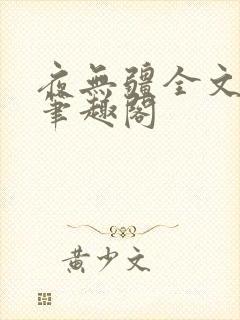 夜無疆全文
筆趣閣
黄少文